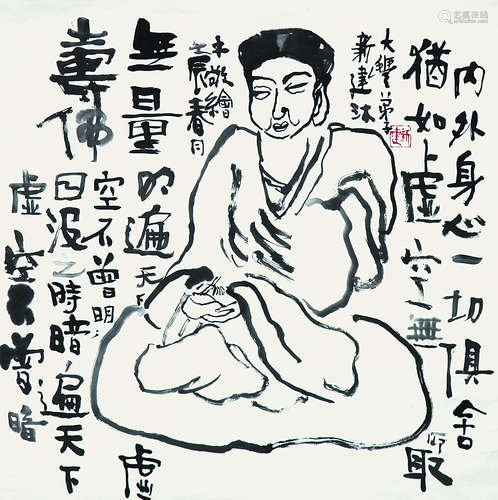 内外身心一切俱舍
猶如虛空無所取
大豐弟子
新建沐
手敬繪
壬辰春月
無量
壽佛
明遍天下
虛
空不曾明
日没之時暗遍天下
虛空不曾暗